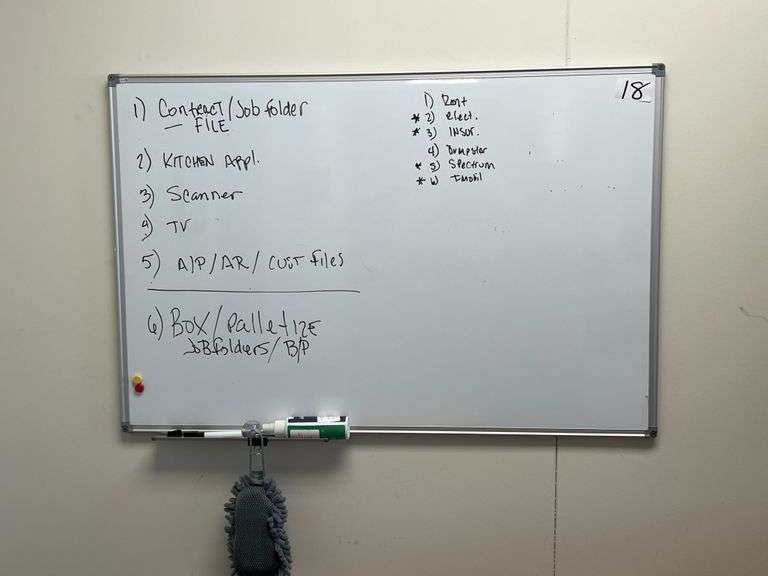 1) Contract/Job folder
— FILE
2) KITCHEN Appl.
3) Scanner
4) TV
5) A/P/AR/ CUST files
6) Box/palletize
JOBfolders/ B/P
1) Rent
* 2) elect.
* 3) INSUR.
4) Dumpster
* 5) Spectrum
* 6)
18